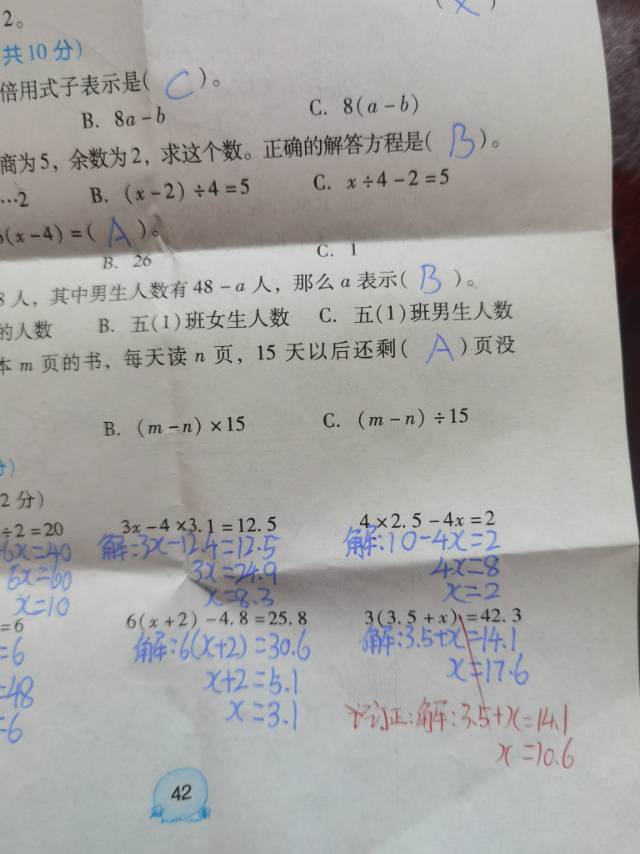 2。 (×)
共10分)
倍用式子表示是( C )。
B. 8a-b C. 8(a-b)
商为5，余数为2，求这个数。正确的解答方程是( B )。
…2 B. (x-2)÷4=5 C. x÷4-2=5
(x-4)=( A )。
B. 26 C. 1
8人，其中男生人数有48-a人，那么a表示( B )。
的人数 B. 五(1)班女生人数 C. 五(1)班男生人数
本m页的书，每天读n页，15天以后还剩( A )页没
B. (m-n)×15 C. (m-n)÷15
分)
2分)
÷2=20 3x-4×3.1=12.5 4×2.5-4x=2
6x=40 解:3x-12.4=12.5 解:10-4x=2
6x=60 3x=24.9 4x=8
x=10 x=8.3 x=2
=6 6(x+2)-4.8=25.8 3(3.5+x)=42.3
=6 解:6(x+2)=30.6 解:3.5+x=14.1
=48 x+2=5.1 x=17.6
=6 x=3.1
订正:解:3.5+x=14.1
x=10.6
42